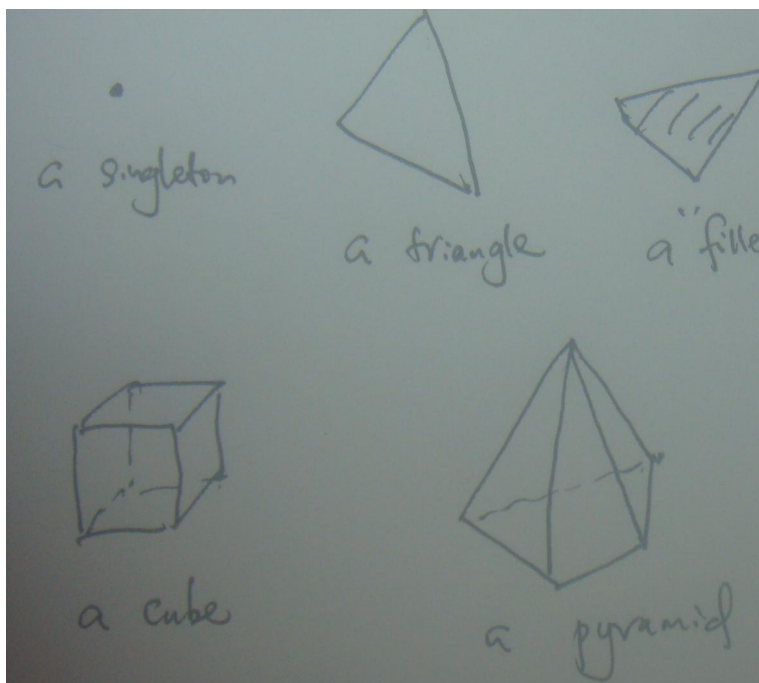 a singleton
a triangle
a "fille
a cube
a pyramid